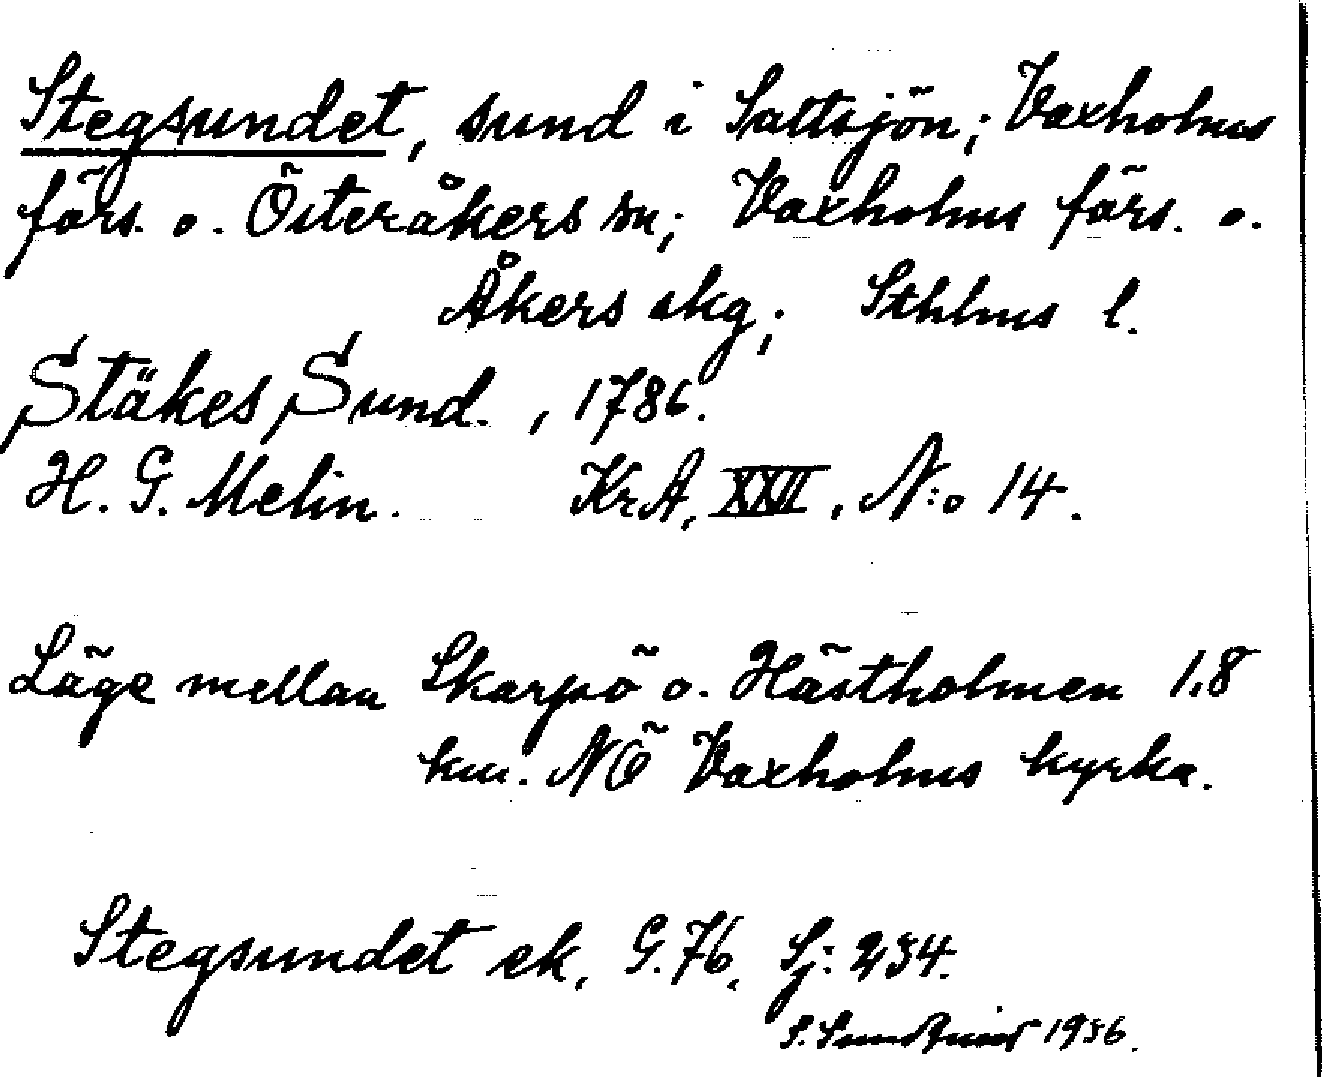 Stegsundet, sund i Saltsjön; Vaxholms
förs. o. Österåkers sn; Vaxholms förs. o.
Åkers skg; Sthlms l.
Stäkes Sund., 1786.
H. G. Melin. KrA, XXII, N:o 14.
Läge mellan Skarpö o. Hästholmen 1.8
km. NÖ Vaxholms kyrka.
Stegsundet ek. G.76, Sj: 234.
S. 1936.